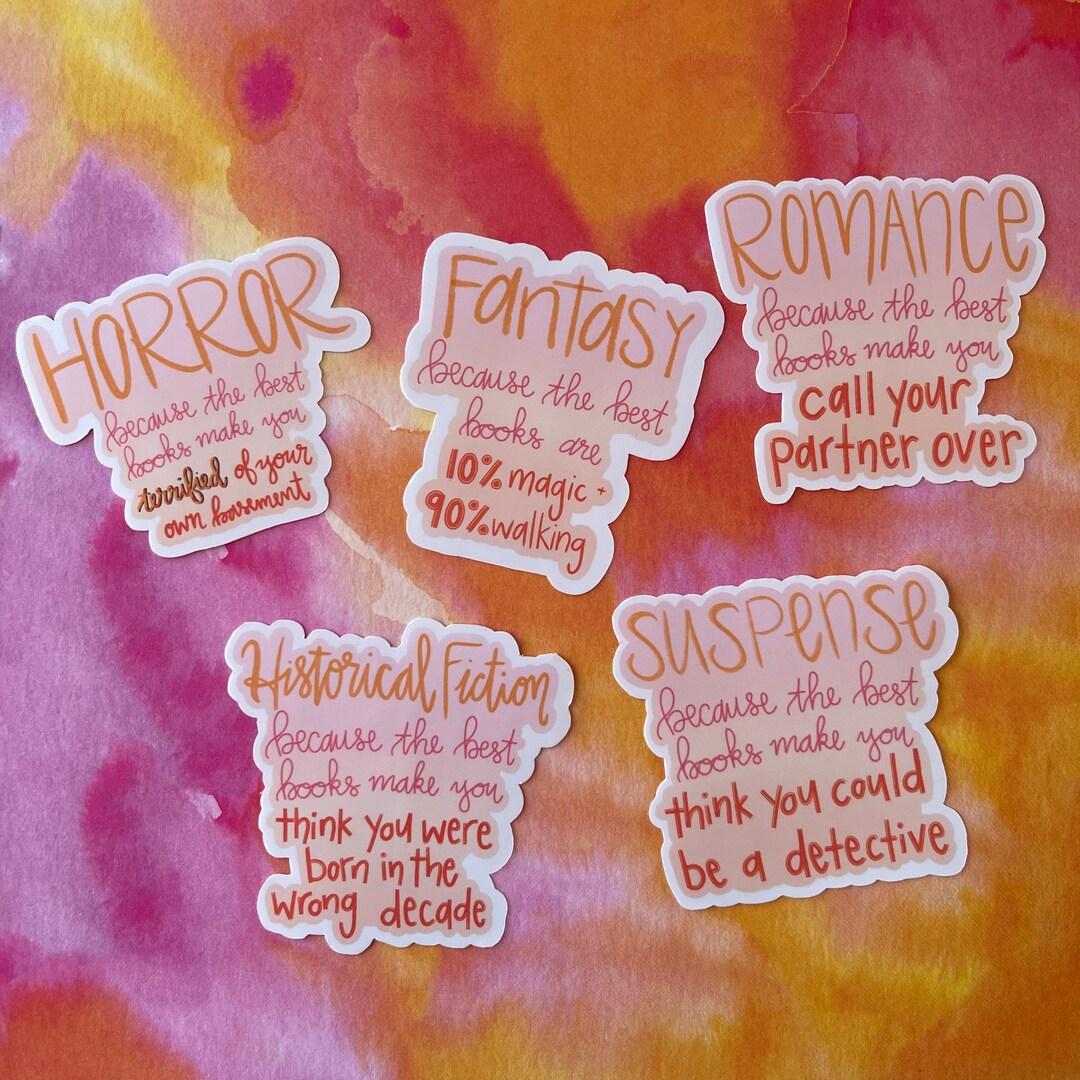 HORROR
because the best
books make you
terrified of your
own basement
Fantasy
because the best
books are
10% magic +
90% walking
ROMANCE
because the best
books make you
call your
partner over
Historical Fiction
because the best
books make you
think you were
born in the
wrong decade
SUSPENSE
because the best
books make you
think you could
be a detective